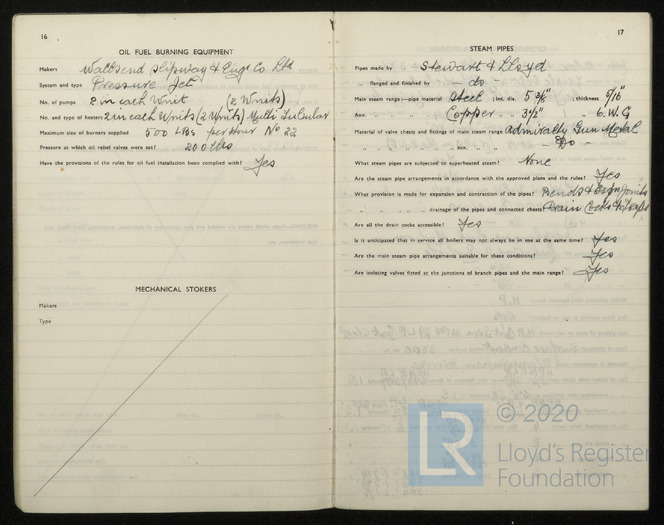 16
OIL FUEL BURNING EQUIPMENT
Makers Wallsend Slipway & Engg Co Ltd
System and type Pressure Jet
No. of pumps 2 in each Unit (2 Units)
No. and type of heaters 2 in each Units (2 Units) Multi Tubular
Maximum size of burners supplied 500 Lbs. per Hour No 22
Pressure at which oil relief valves were set? 200 lbs
Have the provisions of the rules for oil fuel installation been complied with? Yes
MECHANICAL STOKERS
Makers
Type
17
STEAM PIPES
Pipes made by Stewart & Lloyd
„ flanged and finished by - do -
Main steam range:—pipe material Steel ; int. dia. 5 3/8" ; thickness 5/16"
Aux. „ „ „ Copper „ 3½" „ 6. W.G
Material of valve chests and fittings of main steam range Admiralty Gun Metal
„ „ „ aux. „ „ - Do -
What steam pipes are subjected to superheated steam? None
Are the steam pipe arrangements in accordance with the approved plans and the rules? Yes
What provision is made for expansion and contraction of the pipes? Bends & Expn Joints
„ „ „ „ drainage of the pipes and connected chests? Drain Cocks &
Are all the drain cocks accessible? Yes
Is it anticipated that in service all boilers may not always be in use at the same time? Yes
Are the main steam pipe arrangements suitable for these conditions? Yes
Are isolating valves fitted at the junctions of branch pipes and the main range? Yes
LR © 2020
Lloyd's Register
Foundation